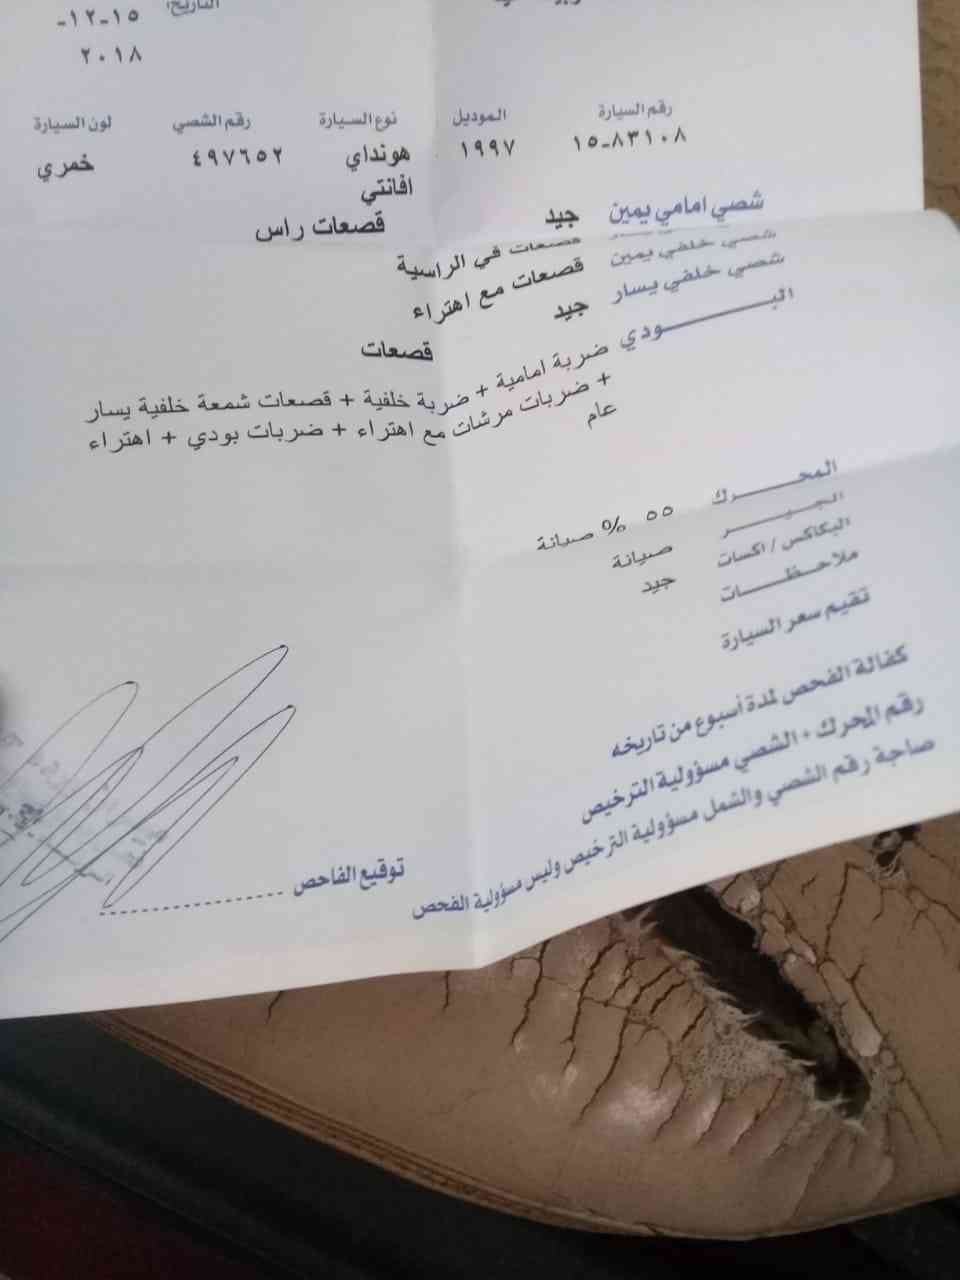 التاريخ:
١٥-١٢-
٢٠١٨
رقم السيارة الموديل نوع السيارة رقم الشصي لون السيارة
١٥-٨٣١٠٨ ١٩٩٧ هونداي ٤٩٧٦٥٢ خمري
افانتي
شصي امامي يمين جيد قصعات راس
قصعات في الراسية
شصي خلفي يمين قصعات مع اهتراء
شصي خلفي يسار جيد
البـــــودي قصعات
ضربة امامية + ضربة خلفية + قصعات شمعة خلفية يسار
+ ضربات مرشات مع اهتراء + ضربات بودي + اهتراء
عام
المحـــــرك ٥٥ % صيانة
الجـــيـــر صيانة
البكاكس / اكسات جيد
ملاحظـــات
تقيم سعر السيارة
كفالة الفحص لمدة أسبوع من تاريخه
رقم المحرك + الشصي مسؤولية الترخيص
صاجة رقم الشصي والشمل مسؤولية الترخيص وليس مسؤولية الفحص
توقيع الفاحص